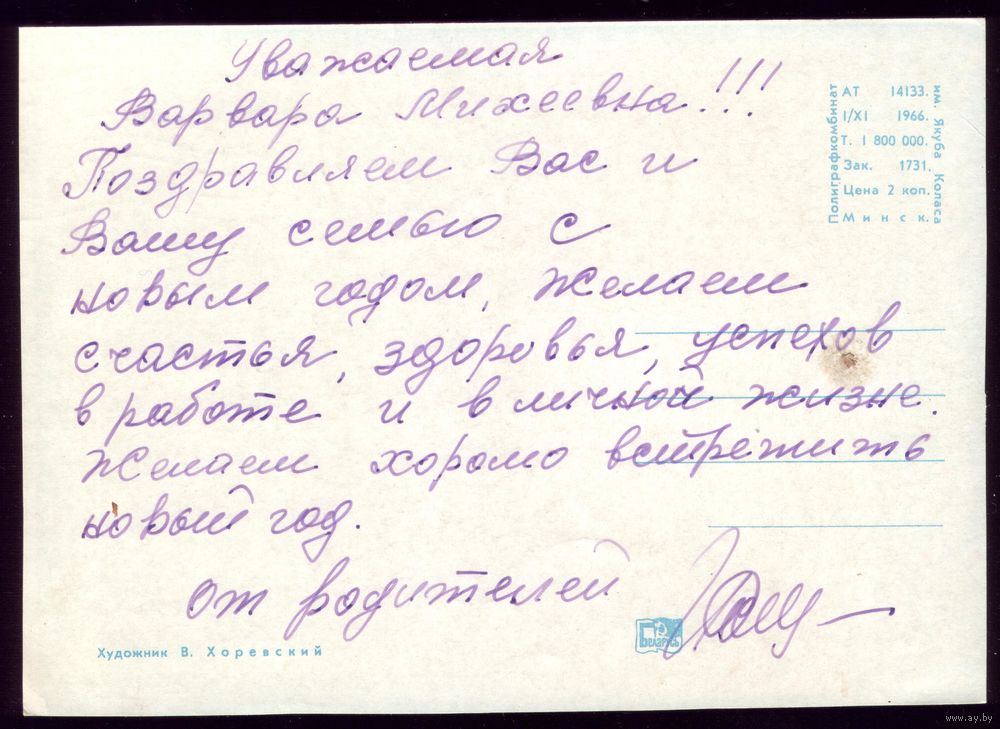 Уважаемая
Варвара Михеевна!!!
Поздравляем Вас и
Вашу семью с
новым годом, желаем
счастья, здоровья, успехов
в работе и в личной жизне.
Желаем хорошо встретить
новый год.
от родителей
Художник В. Хоревский
Беларусь
Полиграфкомбинат
АТ 14133.
I/XI 1966.
Т. 1 800 000.
Зак. 1731.
Цена 2 коп.
Минск.
им. Якуба Коласа
www.ay.by